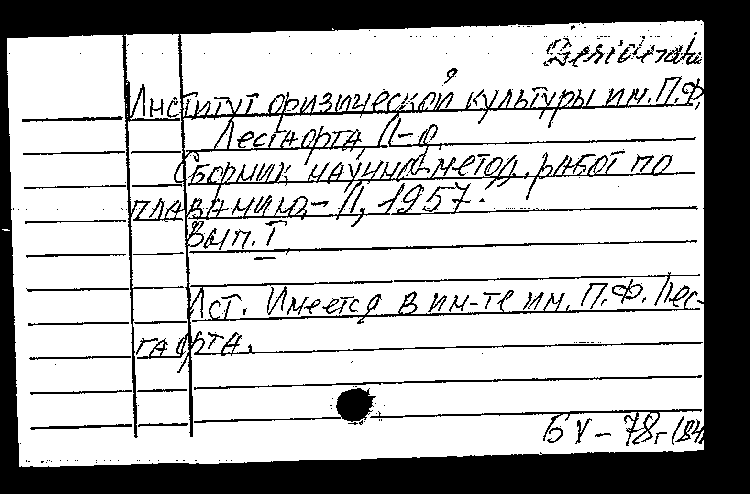 Desiderata
Институт физической культуры им. П.Ф.
Лесгафта, Л-д.
Сборник научно-метод. работ по
плаванию. – Л, 1957.
Вып. I
Ист. Имеется в ин-те им. П.Ф. Лес-
гафта.
БУ – 78г (84